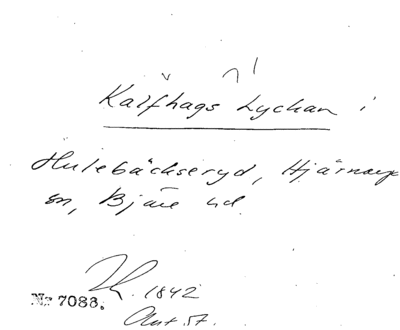 Kalfhags Lyckan i
Hulebäckseryd, Hjärnarp
sn, Bjäre hd.
1842
Nr 7088.
Ant. St.